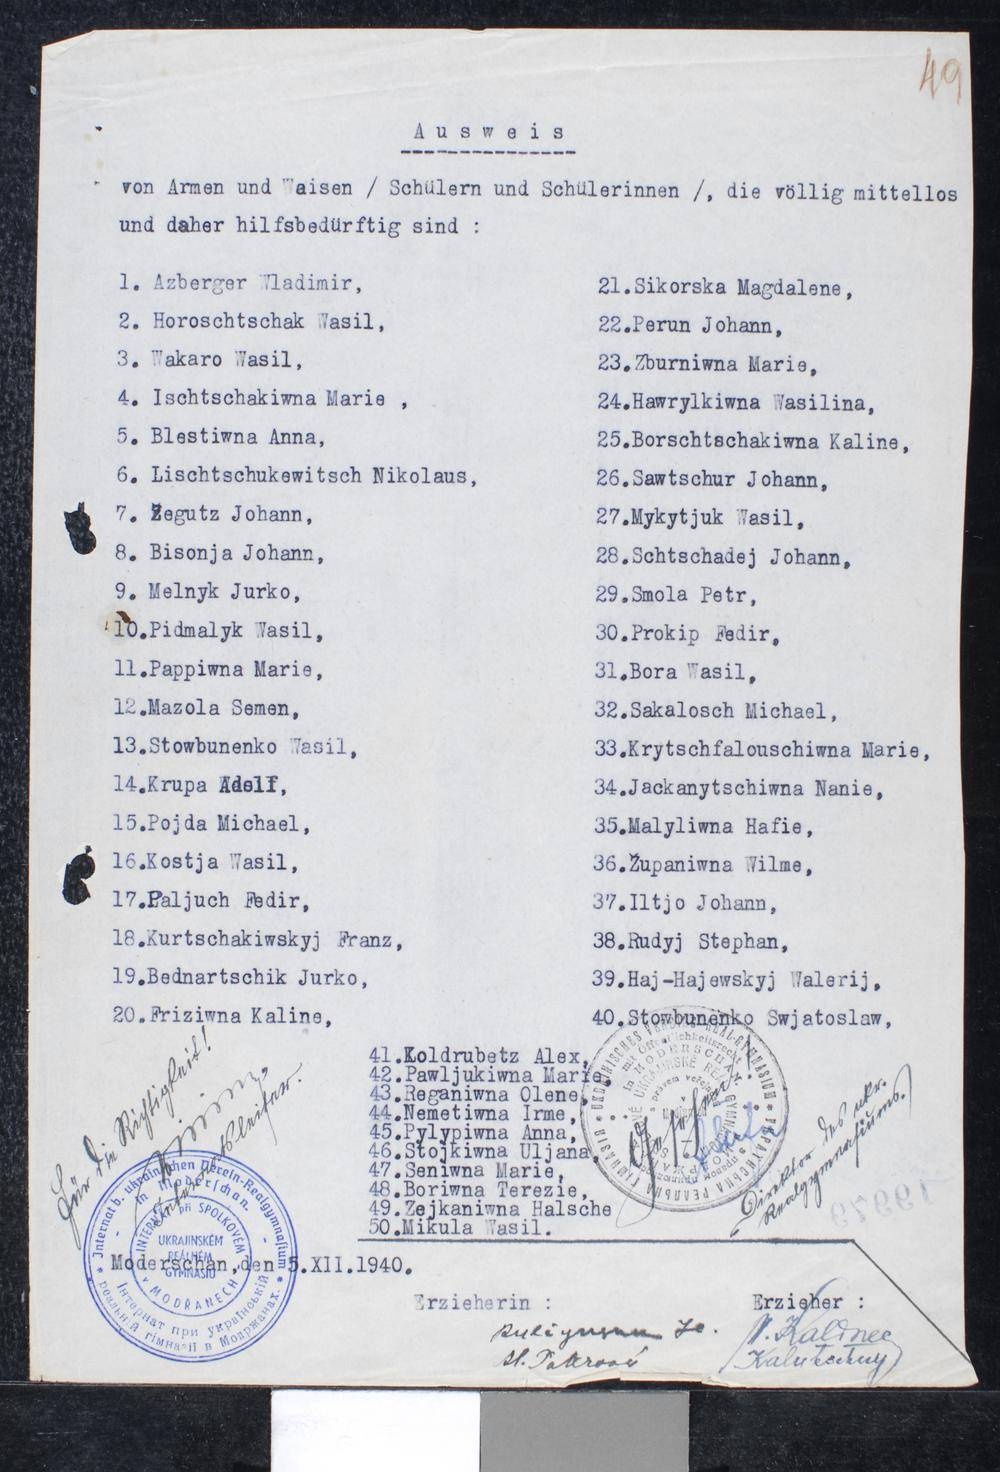 49
Ausweis
von Armen und Waisen / Schülern und Schülerinnen /, die völlig mittellos
und daher hilfsbedürftig sind :
1. Azberger Wladimir,
2. Horoschtschak Wasil,
3. Wakaro Wasil,
4. Ischtschakiwna Marie ,
5. Blestiwna Anna,
6. Lischtschukewitsch Nikolaus,
7. Žegutz Johann,
8. Bisonja Johann,
9. Melnyk Jurko,
10.Pidmalyk Wasil,
11.Pappiwna Marie,
12.Mazola Semen,
13.Stowbunenko Wasil,
14.Krupa Adolf,
15.Pojda Michael,
16.Kostja Wasil,
17.Paljuch Fedir,
18.Kurtschakiwskyj Franz,
19.Bednartschik Jurko,
20.Friziwna Kaline,
21.Sikorska Magdalene,
22.Perun Johann,
23.Zburniwna Marie,
24.Hawrylkiwna Wasilina,
25.Borschtschakiwna Kaline,
26.Sawtschur Johann,
27.Mykytjuk Wasil,
28.Schtschadej Johann,
29.Smola Petr,
30.Prokip Fedir,
31.Bora Wasil,
32.Sakalosch Michael,
33.Krytschfalouschiwna Marie,
34.Jackanytschiwna Nanie,
35.Malyliwna Hafie,
36.Županiwna Wilme,
37.Iltjo Johann,
38.Rudyj Stephan,
39.Haj-Hajewskyj Walerij,
40.Stowbunenko Swjatoslaw,
41.Koldrubetz Alex,
42.Pawljukiwna Marie,
43.Reganiwna Olene,
44.Nemetiwna Irme,
45.Pylypiwna Anna,
46.Stojkiwna Uljana,
47.Seniwna Marie,
48.Boriwna Terezie,
49.Zejkaniwna Halsche
50.Mikula Wasil.
Für die Richtigkeit!
Internatsleiter.
Direktor des ukr.
Realgymnasiums.
Internat b. ukrainischen Verein-Realgymnasium
in Moderschan.
INTERNÁT při SPOLKOVÉM
UKRAJINSKÉM
REÁLNÉM
GYMNASIU
v MODŘANECH
Інтернат при українській
реальній гімназії в Модржанах.
Moderschan,den 5.XII.1940.
Erzieherin :
Erzieher :